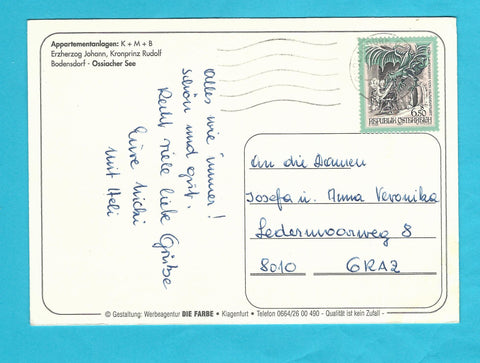 Appartementanlagen: K + M + B
Erzherzog Johann, Kronprinz Rudolf
Bodensdorf - Ossiacher See
Alles wie immer!
schön und gut.
Recht viele liebe Grüße
Eure Michi
mit Heli
6.50
REPUBLIK ÖSTERREICH
An die Damen
Josefa u. Anna Veronika
Ledermoorweg 8
8010 GRAZ
© Gestaltung: Werbeagentur DIE FARBE • Klagenfurt • Telefon 0664/26 00 490 - Qualität ist kein Zufall -